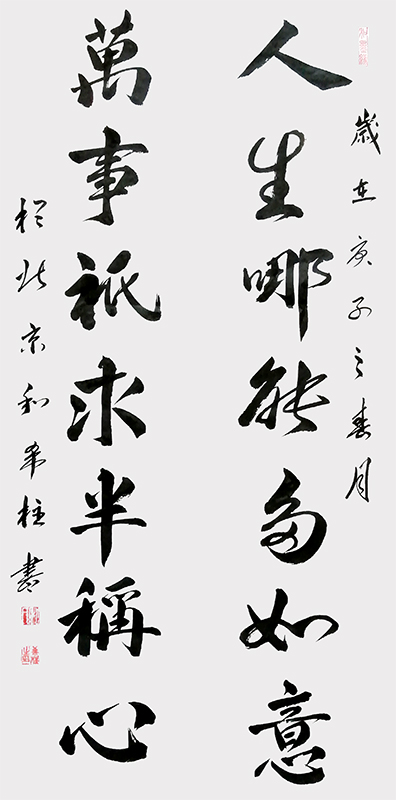 歲在庚子之春月
人生哪能多如意
萬事祇求半稱心
於北京和希柱書